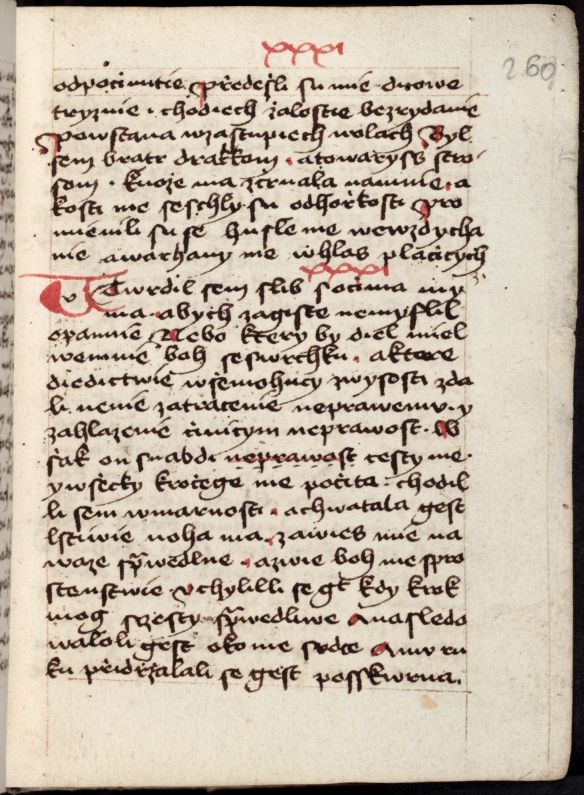 xxxi
269
odpočinutie Przědešli su mie dnowe
tryznie · chodiech žalostie bezrydanie
powstana wzastupiech wolach Byl
sem bratr drakkom · atowaryss stro
som · kuoze ma zčrnala namnie · a
kosti me seschly su odhorkosti Pro
mienili su se husle me wewzdycha
nie awarhany me whlas placicych
xxxi
Utwrdil sem slib socima my
ma · abych zagiste nemyslil
opannie Nebo ktery by diel miel
wemnie boh seswrchku · aktere
diedictwie wsemohucy zwysosti zda
li nenie zatracenie neprawemu · y
zahlazenie činicym neprawost · W
ssak on snabdi neprawost cesty me ·
y wsecky krocege me počita · chodil
li sem wmarnosti · achwatala gest
lstiwie noha ma, zawies mie na
waze sprwedlne · azwie boh me spro
stenstwie uchylilli se gt kdy krok
mog szesty sprwedliwe Anasledo
waloli gest oko me srdce Anwru
ku přidrzalali se gest posskwrna.